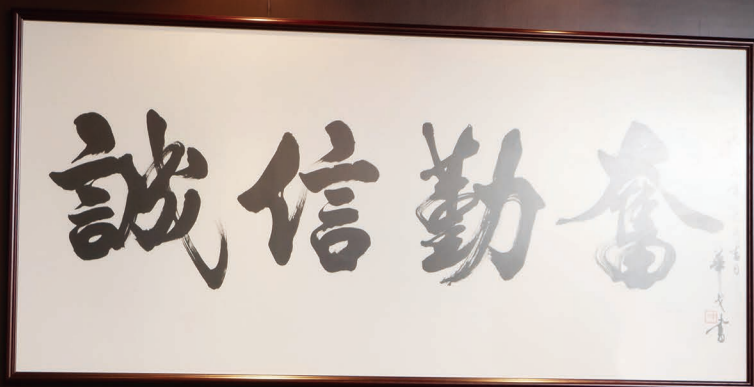 誠信勤奮
華戈書